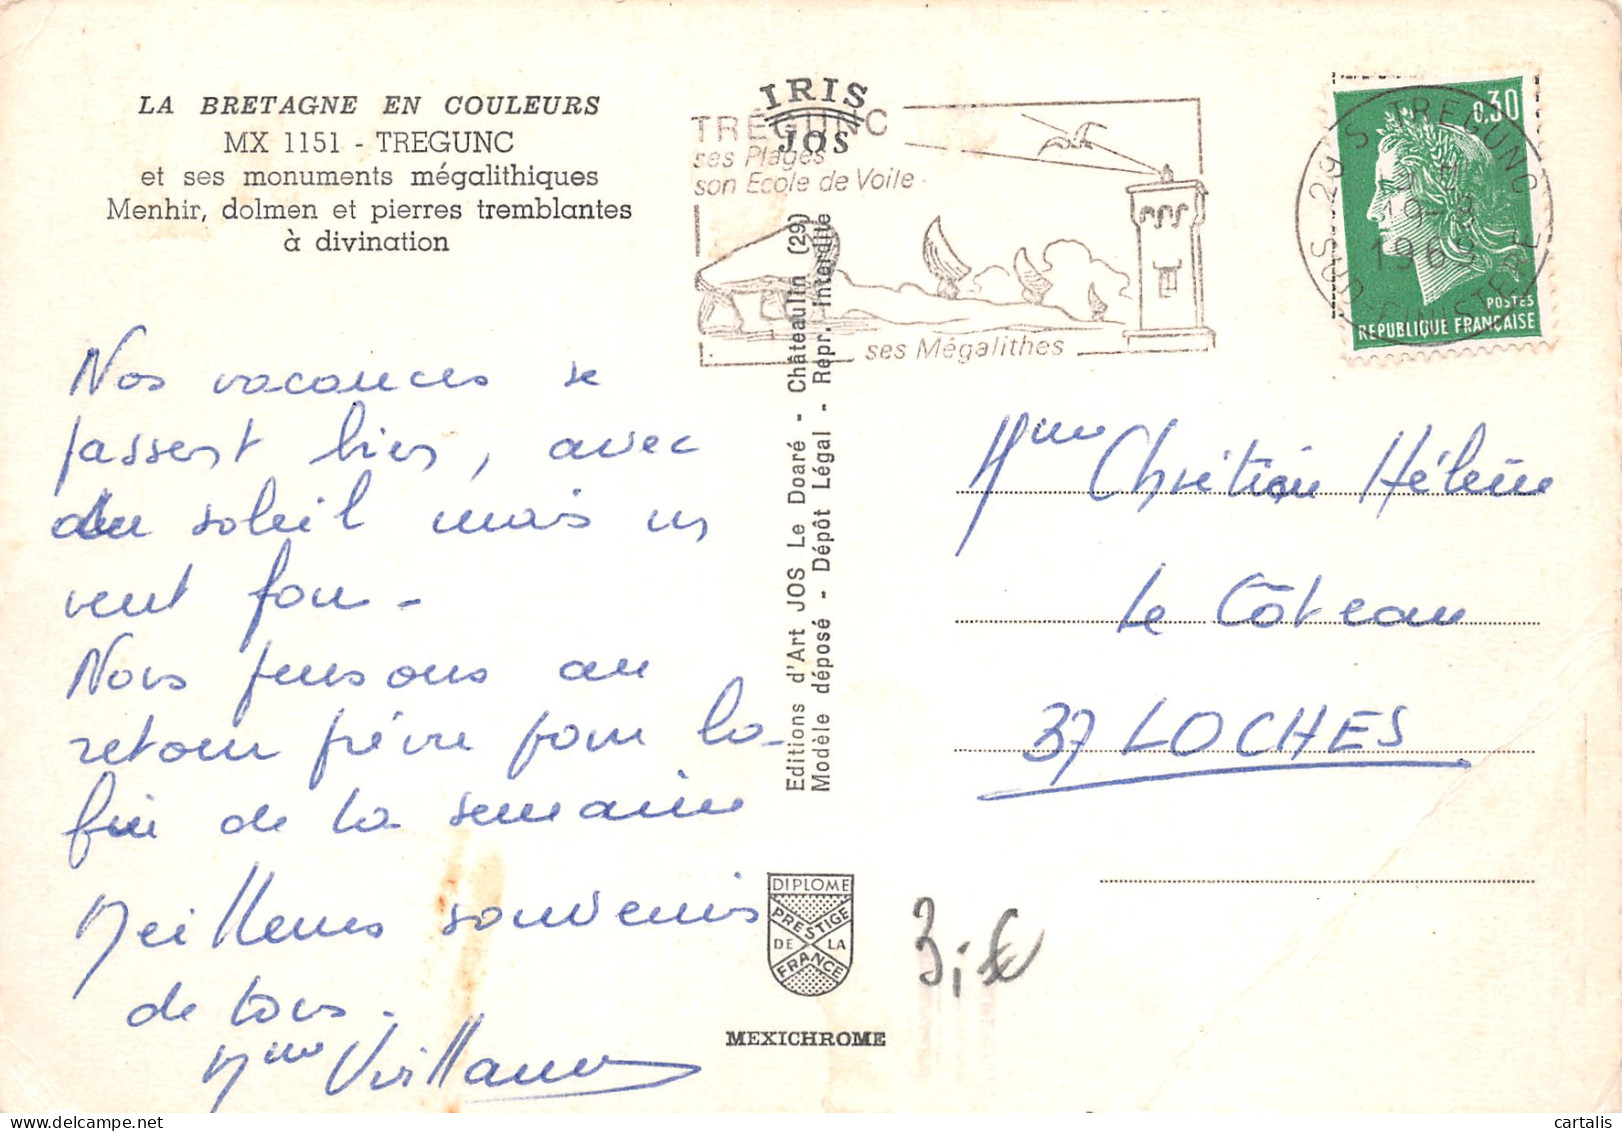 LA BRETAGNE EN COULEURS
MX 1151 - TREGUNC
et ses monuments mégalithiques
Menhir, dolmen et pierres tremblantes
à divination
IRIS
JOS
TRÉGUNC
ses Plages
son Ecole de Voile
ses Mégalithes
29 S TREGUNC
19-8
1969
FINISTERE
0,30
POSTES
REPUBLIQUE FRANÇAISE
Nos vacances se
passent bien, avec
du soleil mais un
vent fou -
Nous pensons au
retour prévu pour la
fin de la semaine
Meilleurs souvenirs
de tous.
Mme
Editions d'Art JOS Le Doaré - Châteaulin (29)
Modèle déposé - Dépôt Légal - Repr. interdite
Mme Chrétien Hélène
Le Côteau
37 LOCHES
DIPLOME
PRESTIGE
DE LA
FRANCE
MEXICHROME
3,€
cartalis